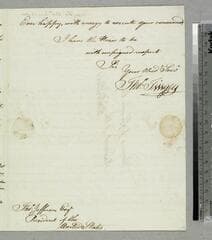 Ever happy, with energy to execute your command
I have the Honor to be
with unfeigned respect
Sir
Your Obed. Serv.
Tho. Tingey
Tho. Jefferson Esq.
President of the
United States